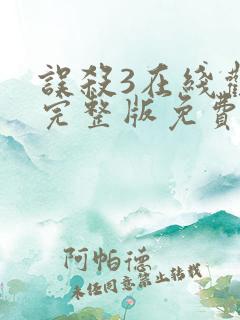 誤殺3在綫觀
完整版免費
阿帕德
未经同意禁止转载